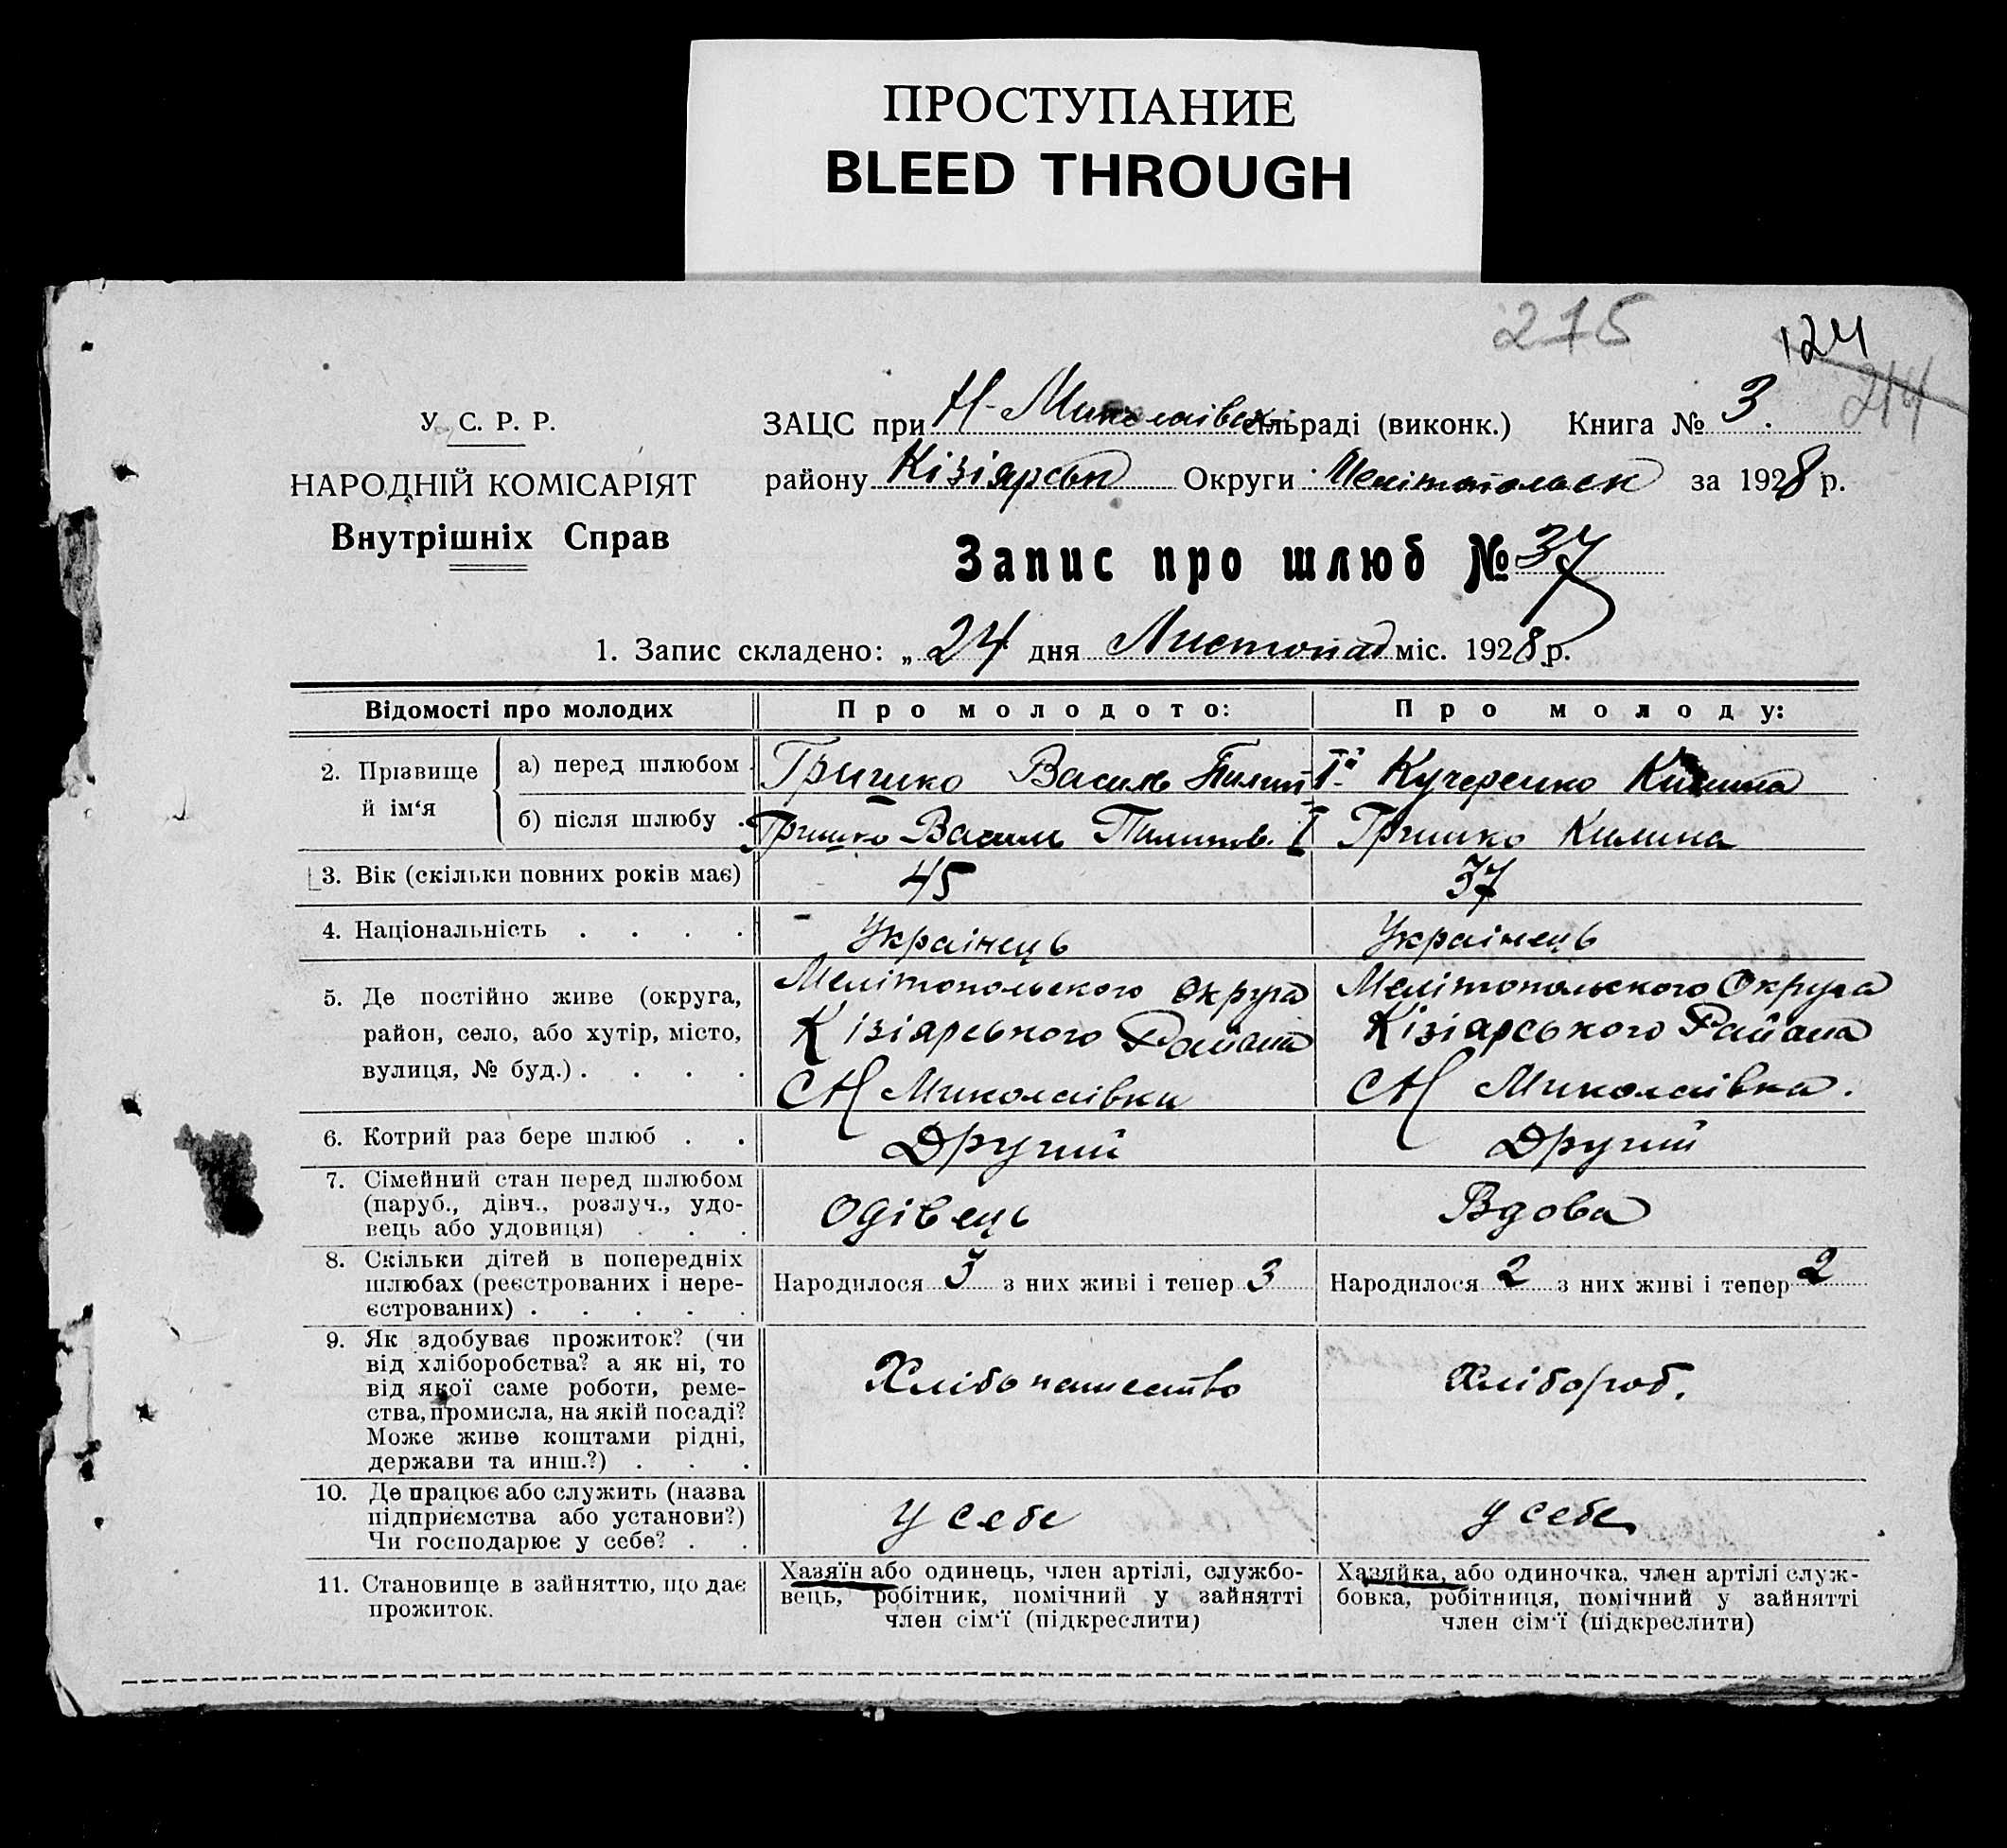 ПРОСТУПАНИЕ
BLEED THROUGH
275
124
244
У. С. Р. Р.
НАРОДНІЙ КОМІСАРІЯТ
Внутрішніх Справ
ЗАЦС при Н-Миколаівск сільраді (виконк.) Книга № 3.
району Кізіярськ Округи Мелітопольск за 1928 р.
Запис про шлюб № 37
1. Запис складено: „24 дня Листопад міс. 1928 р.
Відомості про молодих
Про молодого:
Про молоду:
2. Прізвище й ім‘я
а) перед шлюбом
Гришко Василь Пилип I-й
Кучеренко Килина
б) після шлюбу
Гришко Василь Пилипов. I
Гришко Килина
3. Вік (скільки повних років має)
45
37
4. Національність . . . .
Украінець
Украінець
5. Де постійно живе (округа,
район, село, або хутір, місто,
вулиця, № буд.) . . . .
Мелітопольского Округа
Кізіярського Района
С Н Миколаівки
Мелітопольского Округа
Кізіярського Района
С Н Миколаівка.
6. Котрий раз бере шлюб . .
Другий
Другий
7. Сімейний стан перед шлюбом
(паруб., дівч., розлуч., удо-
вець або удовиця) . . .
Одівець
Вдова
8. Скільки дітей в попередніх
шлюбах (реєстрованих і нере-
єстрованих) . . . . .
Народилося 3 з них живі і тепер 3
Народилося 2 з них живі і тепер 2
9. Як здобуває прожиток? (чи
від хліборобства? а як ні, то
від якої саме роботи, реме-
ства, промисла, на якій посаді?
Може живе коштами рідні,
держави та инш.?) . . .
Хлібопашество
Хлібороб.
10. Де працює або служить (назва
підприємства або установи?)
Чи господарює у себе? . .
у себе
у себе
11. Становище в зайняттю, що дає
прожиток.
Хазяїн або одинець, член артілі, службо-
вець, робітник, помічний у зайнятті
член сім‘ї (підкреслити)
Хазяйка, або одиночка, член артілі служ-
бовка, робітниця, помічний у зайнятті
член сім‘ї (підкреслити)